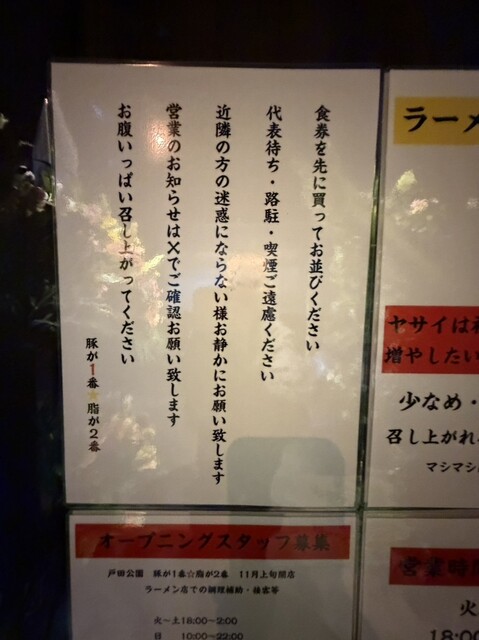 食券を先に買ってお並びください
代表待ち・路駐・喫煙ご遠慮ください
近隣の方の迷惑にならない様お静かにお願い致します
営業のお知らせはXでご確認お願い致します
お腹いっぱい召し上がってください
豚が1番☆脂が2番
ラーメ
ヤサイは
増やしたい
少なめ・
召し上がれ
マシマシ
オープニングスタッフ募集
戸田公園 豚が1番☆脂が2番 11月上旬開店
ラーメン店での調理補助・接客等
火~土18:00~2:00
日 10:00~22:00
営業時
火
18:00